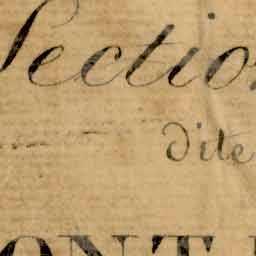 Section
d'ite
ONT